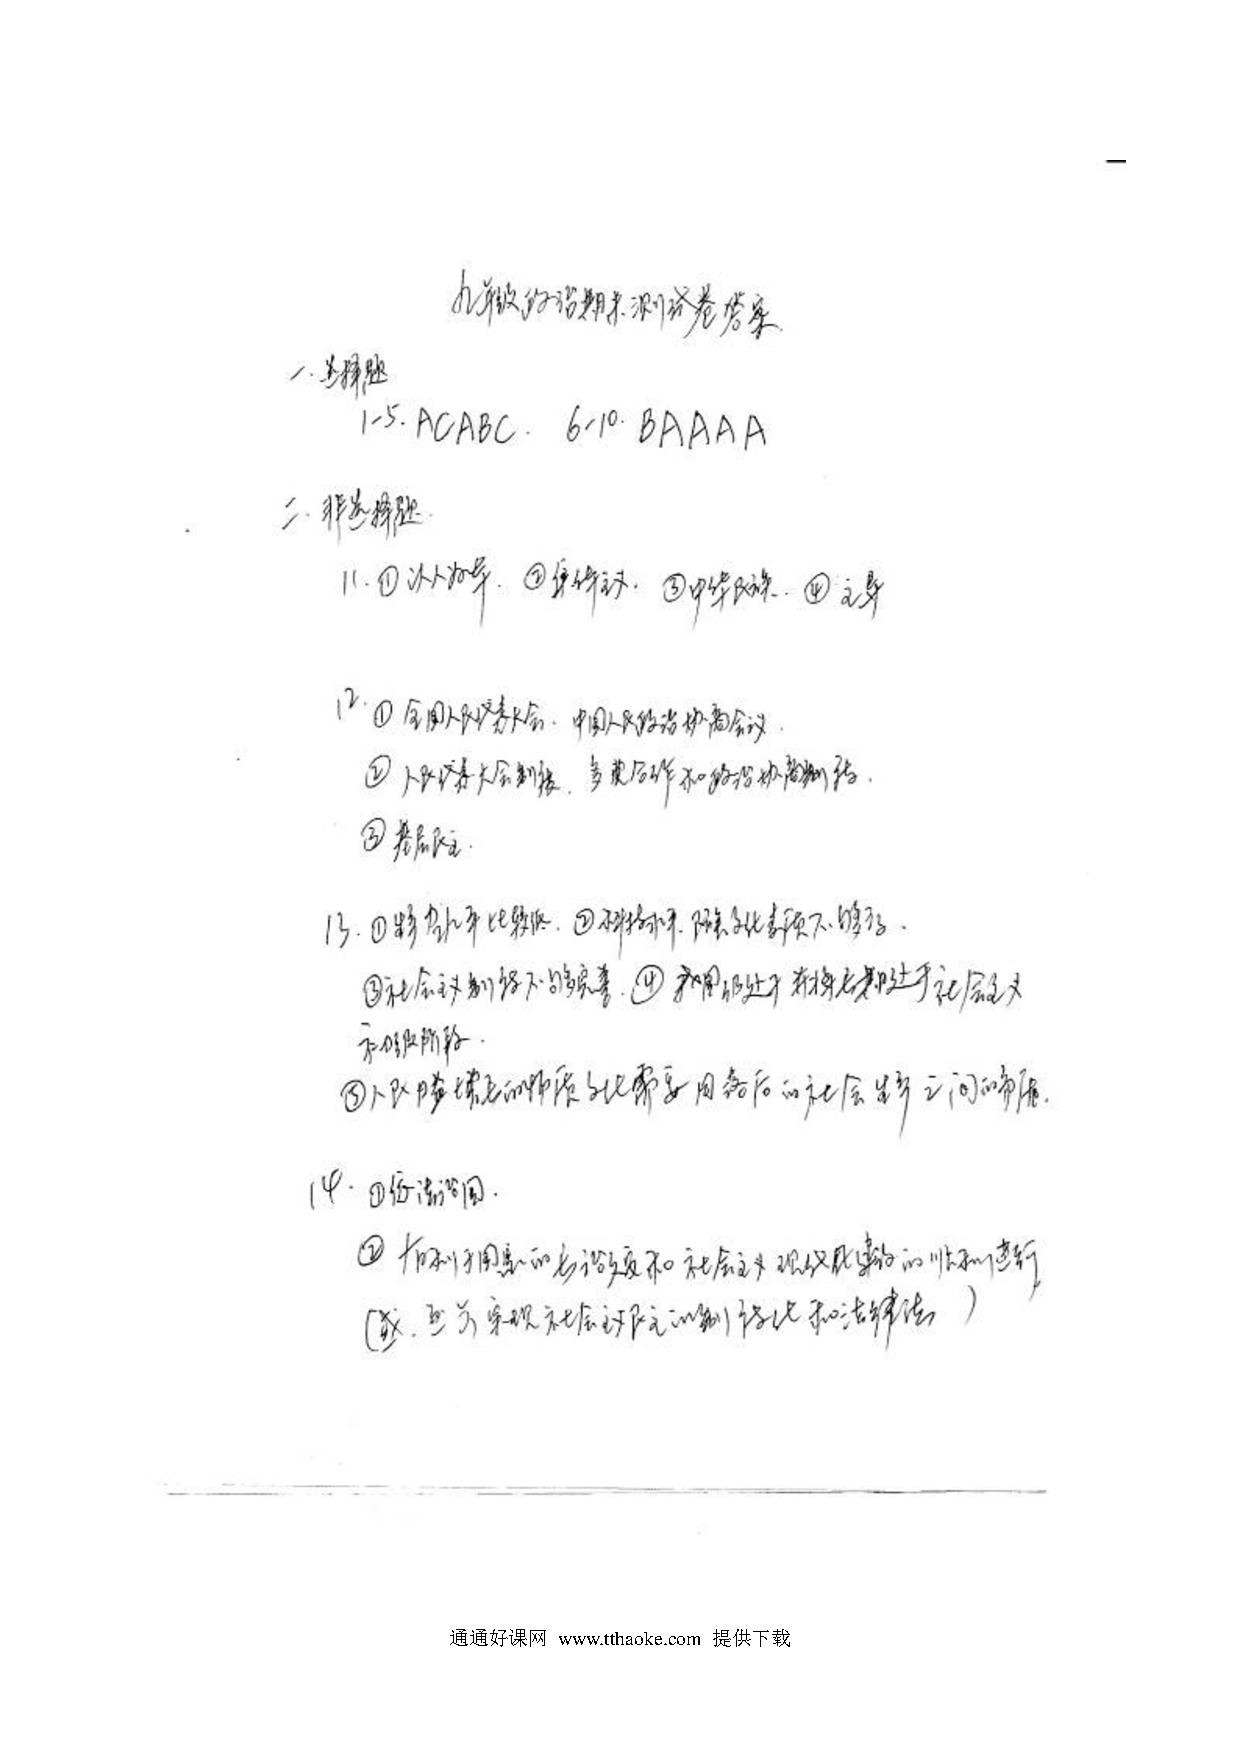 九年级政治期末测试卷答案
一.选择题
1-5. ACABC. 6-10. BAAAA
二.非选择题.
11. ①以人为本. ②集体主义. ③中华民族. ④主导
12. ①全国人民代表大会. 中国人民政治协商会议.
②人民代表大会制度. 多党合作和政治协商制度.
③基层民主.
13. ①生产力水平比较低. ②科技水平. 民族文化素质不够高.
③社会主义制度不够完善. ④我国仍处于并将长期处于社会主义
初级阶段.
⑤人民日益增长的物质文化需要同落后的社会生产之间的矛盾.
14. ①依法治国.
②有利于国家的长治久安和社会主义现代化建设的顺利进行
(或. 是为实现社会主义民主的制度化和法律化)
通通好课网 www.tthaoke.com 提供下载